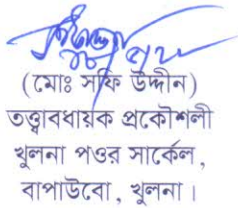 (মোঃ সফি উদ্দীন)
তত্ত্বাবধায়ক প্রকৌশলী
খুলনা পওর সার্কেল,
বাপাউবো, খুলনা।